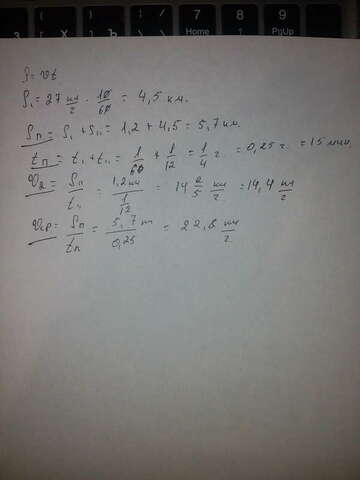 7 8 9
Home ↑ PgUp
S = vt
S₁ = 27 км/г · 10/60 = 4,5 км.
Sп = S₁ + S₁₁ = 1,2 + 4,5 = 5,7 км.
tп = t₁ + t₁₁ = 1/60 + 1/12 = 1/4 г. = 0,25 г. = 15 мин.
V₂ = Sп/t₁₁ = 1,2 км / 1/12 = 14 2/5 км/г = 14,4 км/г
Vср = Sп/tп = 5,7/0,25 = 22,8 км/г